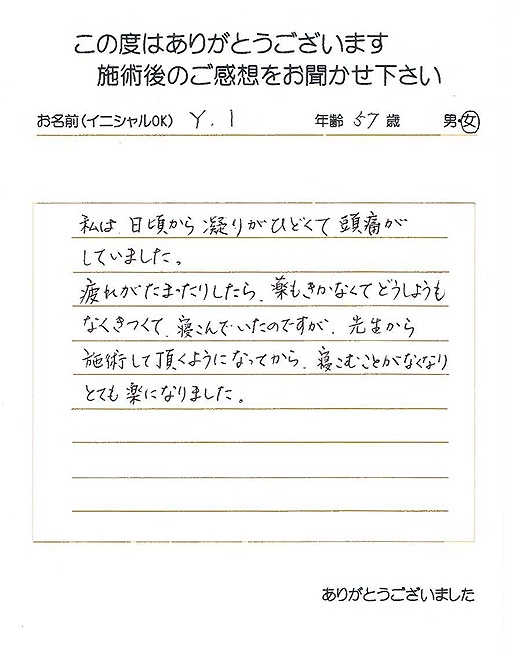 この度はありがとうございます
施術後のご感想をお聞かせ下さい
お名前(イニシャルOK) Y.I 年齢 57 歳 男・女
私は、日頃から凝りがひどくて頭痛が
していました。
疲れがたまったりしたら、薬もきかなくてどうしようも
なくきつくて、寝こんでいたのですが、先生から
施術して頂くようになってから、寝こむことがなくなり
とても楽になりました。
ありがとうございました